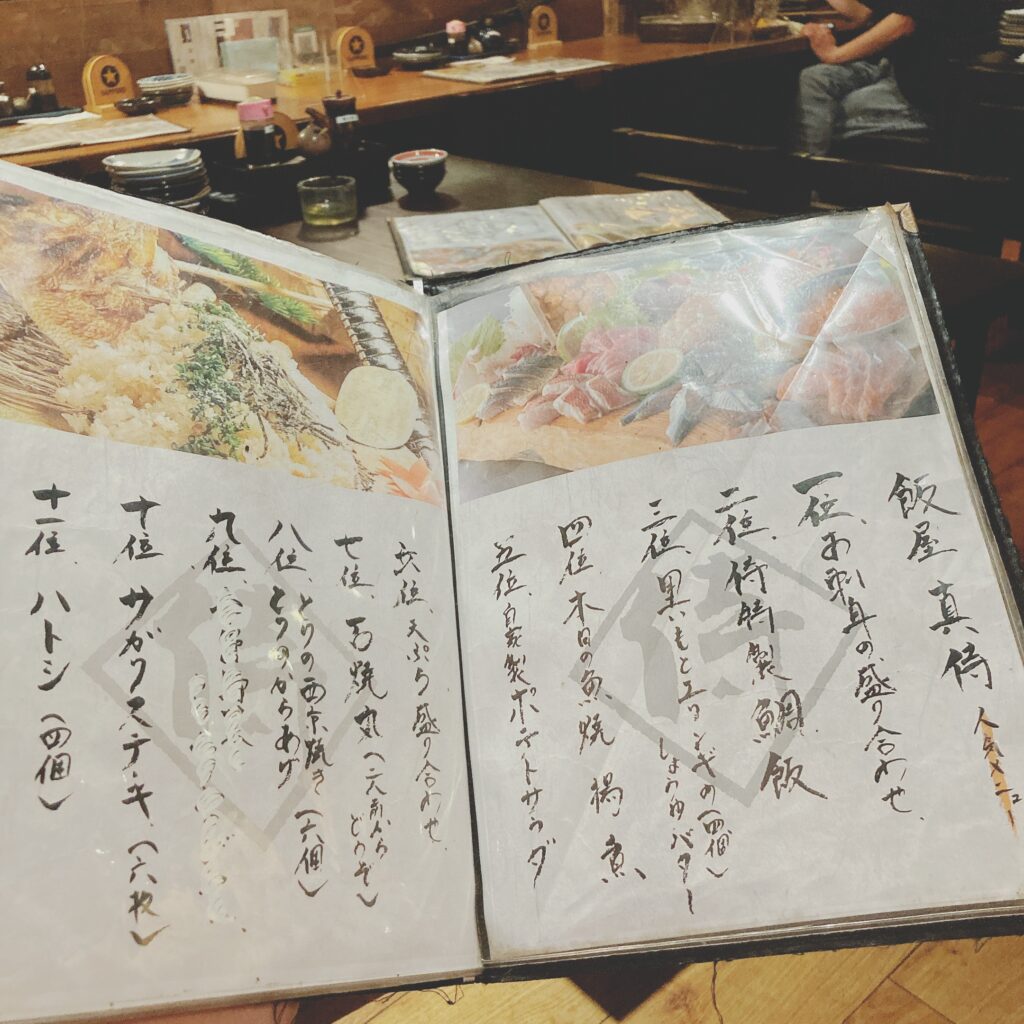 飯屋 真侍 人気メニュー
一位、お刺身の盛り合わせ、
二位、侍特製鯛飯
三位、黒いもとエリンギの(四個)
しょうゆバター
四位、本日の魚 焼 揚 煮
五位、自家製ポテトサラダ
六位、天ぷら盛り合わせ、
七位、石焼 (二人前から
どうぞ)
とりの西京焼き(六個)
八位、とりのからあげ
九位、
十位 サガリステーキ、(六枚)
十一位、ハトシ(四個)
侍
侍
SAPPORO